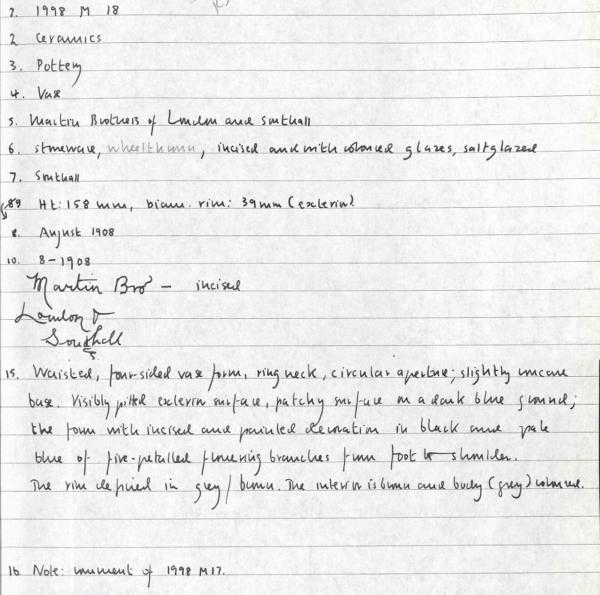 1. 1998 M 18
2 Ceramics
3. Pottery
4. Vase
5. Martin Brothers of London and Southall
6. stoneware, wheelthrown, incised and with coloured glazes, saltglazed
7. Southall
89 Ht: 158 mm, diam. rim: 39mm (exterior)
8. August 1908
10. 8-1908
Martin Bro - incised
London &
Southall
15. Waisted, four-sided vase form, ring neck, circular aperture; slightly concave
base. Visibly pitted exterior surface, patchy surface on a dark blue ground;
the form with incised and painted decoration in black and pale
blue of five-petalled flowering branches from foot to shoulder.
The rim defined in grey/brown. The interior is brown and body (grey) coloured.
16 Note: comment of 1998 M17.